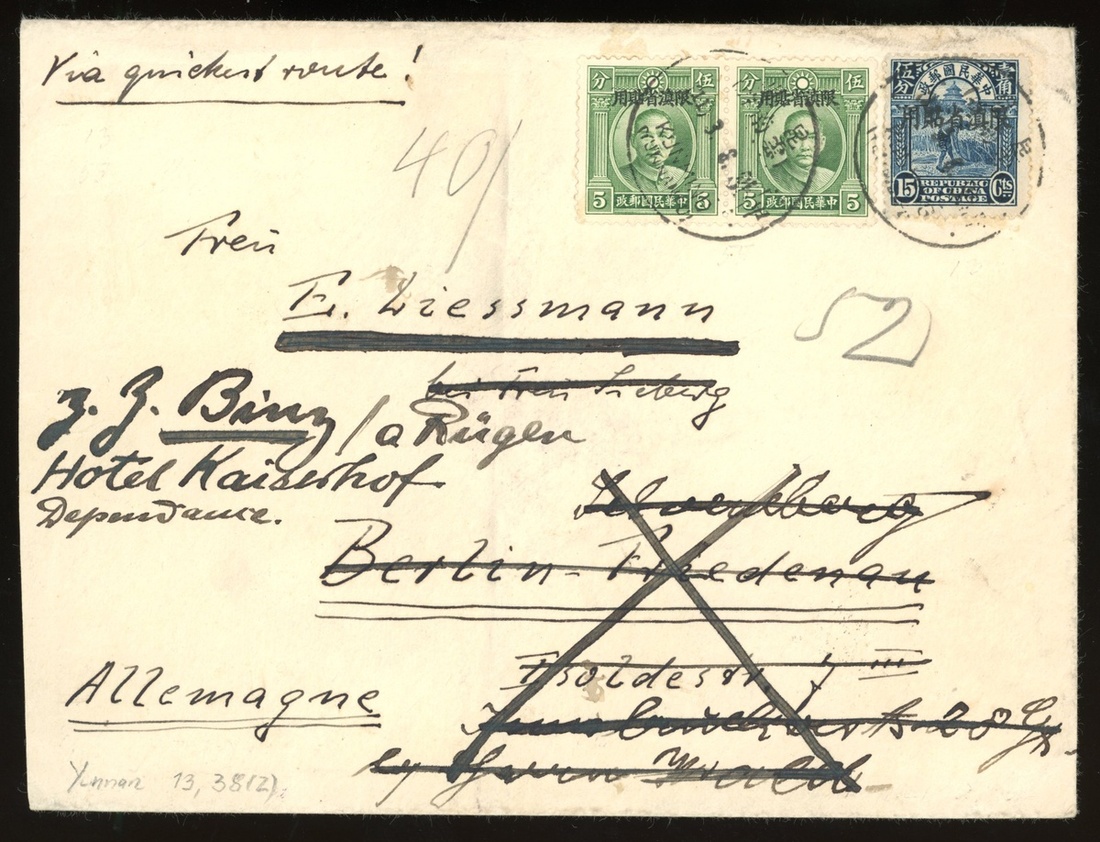 Via quickest route!
分 伍
用貼省滇限
5 政郵國民華中 5
分 伍
用貼省滇限
5 政郵國民華中 5
分伍 政郵國民華中 角壹
用貼省滇限
15 REPUBLIC OF CHINA POSTAGE Cts
40/
Frau
E. Liessmann
52
bei Frau
z. Z. Binz / a Rügen
Hotel Kaiserhof
Dependance.
Berlin-Friedenau
Isoldestr 7 III
Allemagne
by Herrn
Yunnan 13, 38(2)